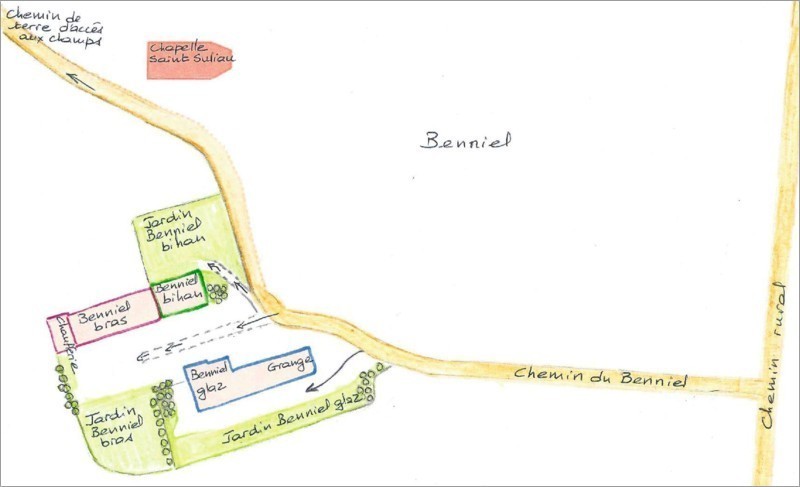 Chemin de
terre d'accès
aux champs
Chapelle
Saint Suliau
Benniel
Jardin
Benniel
bihan
Benniel
bihan
Benniel
bras
Chaufferie
Benniel
glaz
Grange
Jardin
Benniel
bras
Jardin Benniel glaz
Chemin du Benniel
Chemin rural